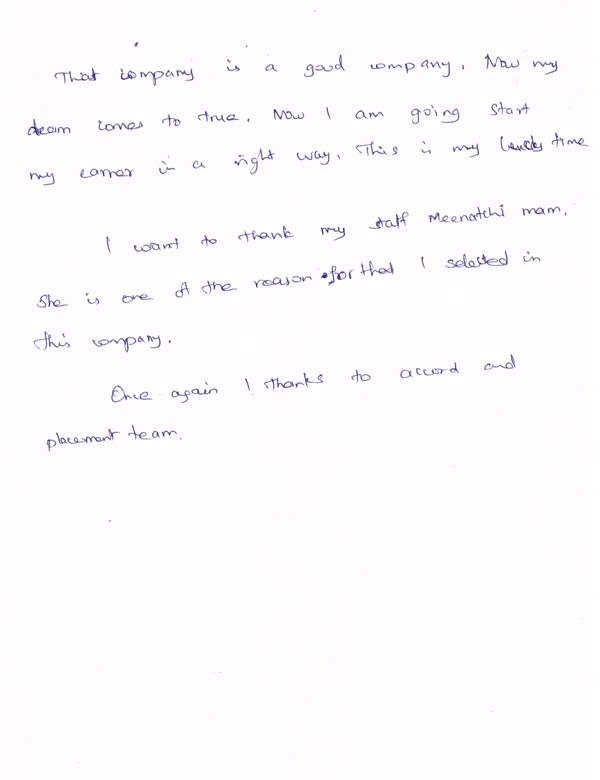 That company is a good company. Now my
deam comes to true. Now I am going start
my carrer in a right way. This is my lucky time
I want to thank my staff Meenatchi mam.
She is one of the reason for that I selected in
this company.
Once again I thanks to accord and
placement team.